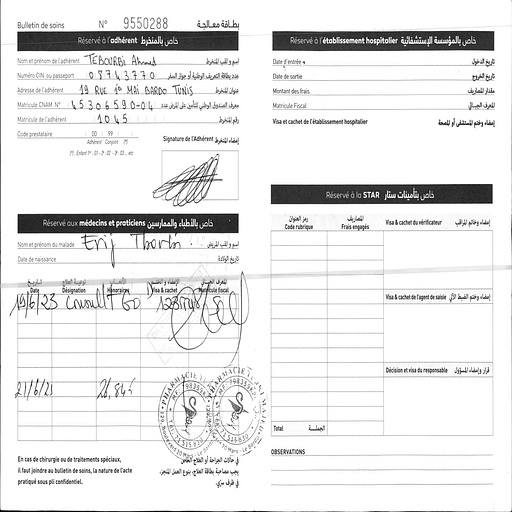 Bulletin de soins N° 9550288 بطاقة معالجة
Réservé à l'adhérent خاص بالمنخرط
Nom et prénom de l'adhérent TEBOURBI Ahmed اسم و لقب المنخرط
Numéro CIN ou passeport 08743770 عدد بطاقة التعريف الوطنية أو جواز السفر
Adresse de l'adhérent 19 RUE 1er MAI BARDO TUNIS عنوان المنخرط
Matricule CNAM N° 45306590-04
Matricule de l'adhérent 1045 رقم المنخرط
Code prestataire 00 99
Adhérent Conjoint (*)
(*) Enfant 1er : 01 - 2e : 02 - 3e : 03 ... etc
Signature de l'Adhérent إمضاء المنخرط
Réservé aux médecins et proticiens خاص بالأطباء والممارسين
Nom et prénom du malade Erij اسم و لقب المريض
Date de naissance تاريخ الولادة
Date Désignation Honoraires Visa & cachet Matricule fiscal
19/6/23 Consult 60
21/6/23 26,845
En cas de chirurgie ou de traitements spéciaux,
il faut joindre au bulletin de soins, la nature de l'acte
pratiqué sous pli confidentiel.
في حالات الجراحة أو العلاج الخاص
يجب مصاحبة بطاقة العلاج، بنوع العمل المنجز،
في ظرف سري.
Réservé à l'établissement hospitalier خاص بالمؤسسة الإستشفائية
Date d'entrée تاريخ الدخول
Date de sortie تاريخ الخروج
Montant des frais مقدار المصاريف
Matricule Fiscal المعرف الجبائي
Visa et cachet de l'établissement hospitalier إمضاء وختم المستشفى أو المصحة
Réservé à la STAR خاص بتأمينات ستار
رمز العنوان المصاريف
Code rubrique Frais engagés Visa & cachet du vérificateur إمضاء وخاتم المراقب
Visa & cachet de l'agent de saisie
Décision et visa du responsable قرار وإمضاء المسؤول
Total الجملة
OBSERVATIONS